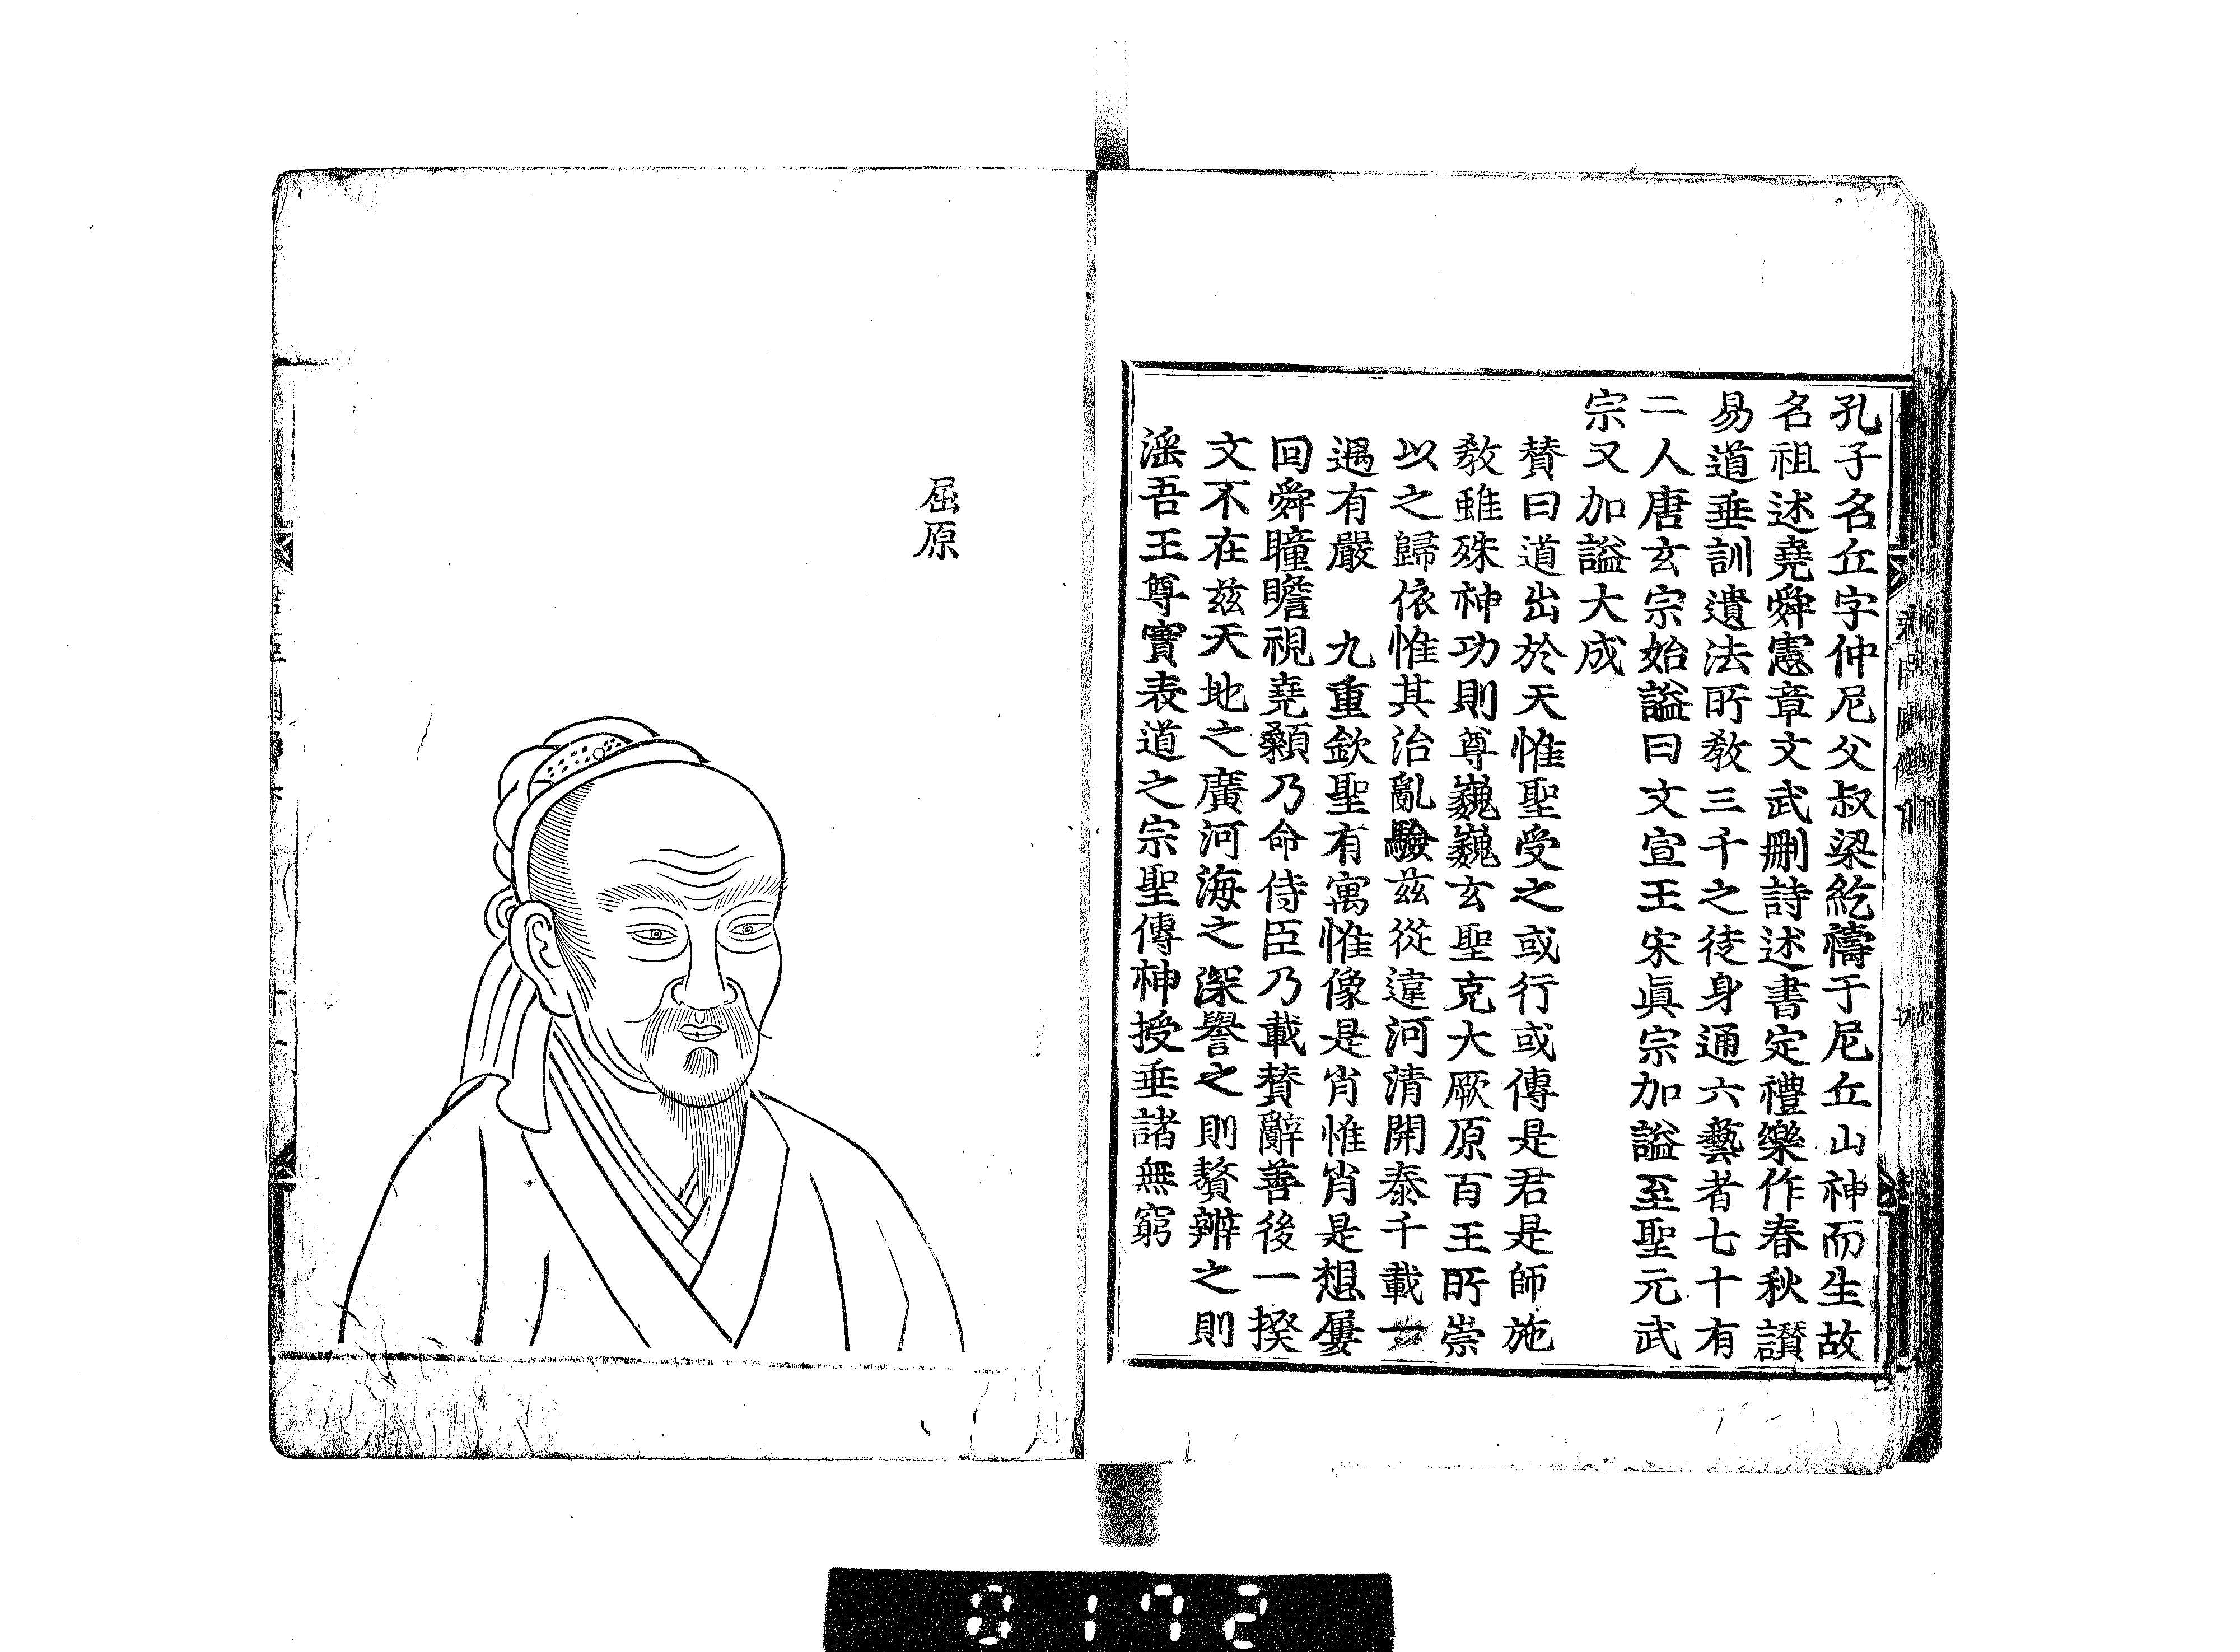 孔子名丘字仲尼父叔梁紇禱于尼丘山神而生故
名祖述堯舜憲章文武刪詩述書定禮樂作春秋讃
易道垂訓遺法所教三千之徒身通六藝者七十有
二人唐玄宗始謚曰文宣王宋眞宗加謚至聖元武
宗又加謚大成
賛曰道出於天惟聖受之或行或傳是君是師施
教雖殊神功則尊巍巍玄聖克大厥原百王所崇
以之歸依惟其治亂驗茲從違河清開泰千載一
遇有嚴 九重欽聖有寓惟像是肖惟肖是想屢
回舜瞳瞻視堯顙乃命侍臣乃載賛辭善後一揆
文不在茲天地之廣河海之深譽之則贅辨之則
滛吾王尊實表道之宗聖傳神授垂諸無窮
屈原
0172